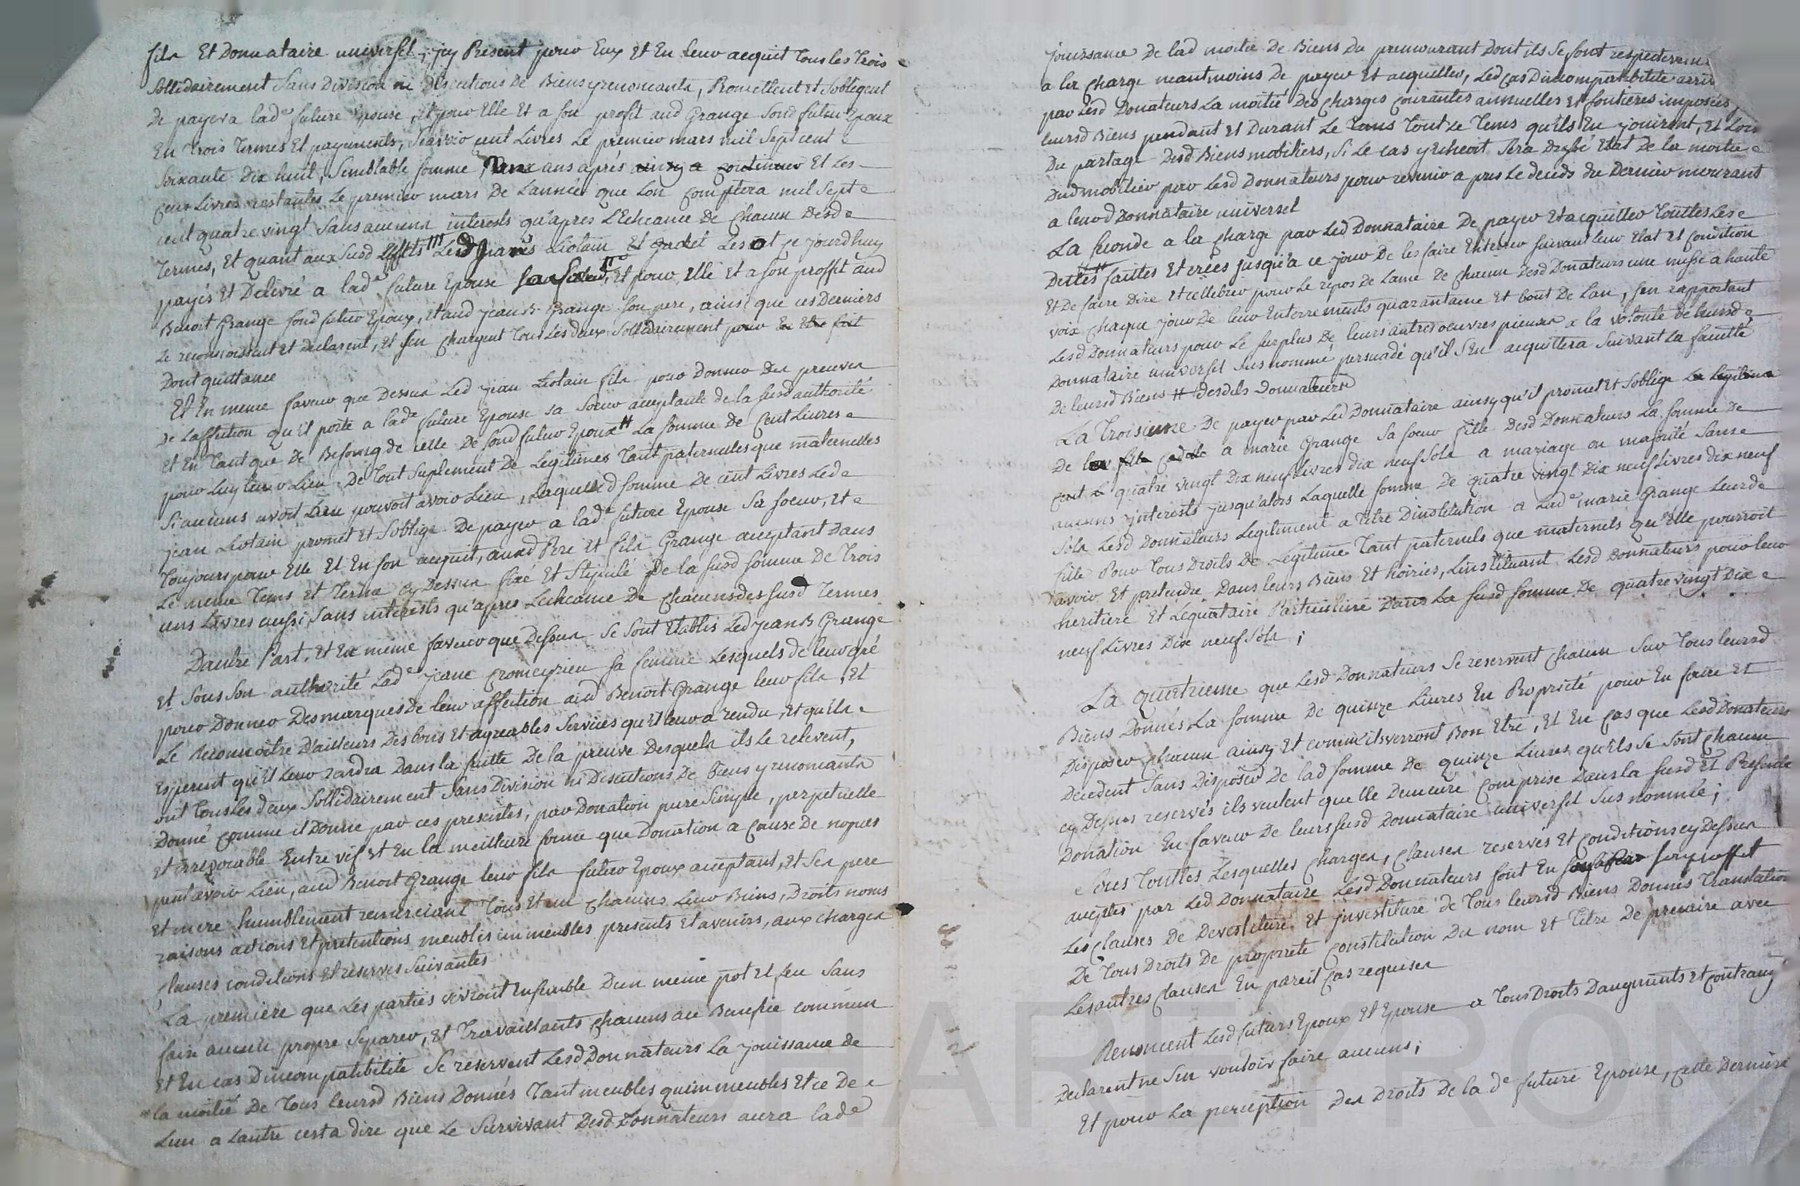 fils Et Donnataire universel, jcy Present pour Eux Et En Leur acquit Tous Les Trois
sollidairement Sans Division ni discutions de Biens y renoncants, Promettent et Sobligent
de payer a lade future Epouse, Et pour Elle Et a Son profit aud Grange Sond futur Epoux
En trois Termes Et payements, Scavoir cent Livres Le premier mars mil Sept cent
Soixante Dix huit, Semblable Somme ans apres Et Les
cent Livres restantes Le premier mars de Lannée que Lon Comptera mil Sept
cent quatre vingt Sans aucuns interests qu'apres L'Echeance de Chacun desd
Termes, Et quant aux Susd Effets Led Liotain ce jourdhuy
payés Et Delivré a lade future Epouse Et pour Elle Et a Son proffit aud
Benoit Grange Sond futur Epoux, Et aud jean B. Grange Son pere, ainsi que ces Derniers
Le reconnoissent Et declarent, Et Sen Chargent Tous Les deux Sollidairement pour
Dont quittance
Et En meme faveur que Dessus Led jean Liotain fils pour Donner des preuves
de Laffection qu'il porte a lade future Epouse Sa Soeur acceptante de la Susd authorité
Et En Tant que De Besoing de celle de Sond futur Epoux # La Somme de Cent Livres
pour Luy tenir Lieu De Tout Suplement De Legitimes Tant paternelles que maternelles
Si aucuns avoit Lieu pouvoit avoir Lieu, Laquelle d Somme de cent Livres Led
jean Liotain promet Et Soblige De payer a lade future Epouse Sa Soeur, Et
Toujours pour Elle Et En Son acquit, auxd Pere Et fils Grange acceptant Dans
Le meme Tems Et Terme cy Dessus fixé Et Stipulé De la Susd Somme De Trois
cens Livres aussi Sans interests qu'apres Lecheance De Chacuns des Susd Termes
Dautre Part, Et En meme faveur que Dessus Se Sont Etablis Led jean B Grange
Et Sous Son authorité Lade jeane Sa femme Lesquels de Leur gré
pour Donner Des marques De Leur affection aud Benoit Grange Leur fils, Et
Le Reconnoitre D'ailleurs Des bons Et agreables Services qu'il Leur a rendu, Et qu'ils
Esperent qu'il Leur rendra Dans la Suitte De la preuve Desquels ils Le relevent,
ont Tous Les deux Sollidairement Sans Division ni Discutions De Biens y renoncants
Donné Comme il Donne par ces presentes, par Donation pure Simple, perpetuelle
et irrevocable Entre vifs et En la meilleure forme que Donation a Cause de nopces
peut avoir Lieu, aud Benoit Grange Leur fils futur Epoux acceptant, et Ses pere
Et mere humblement remerciant Tous Et un Chacuns Leur Biens, Droits noms
raisons actions Et pretentions meubles immeubles presents Et avenirs, aux charges
Clauses conditions Et reserves Suivantes
La premiere que Les parties vivront Ensemble Dun meme pot Et feu Sans
faire aucun propre Separer, Et Travaillants Chacuns au Benefice commun
Et En cas Dincompatibilité Se reservent Lesd Donnateurs La jouissance de
la moitié De Tous Leursd Biens Donnés Tant meubles quimmeubles Et ce De
Lun a Lautre cest a dire que Le Survivant Desd Donnateurs aura lade
jouissance de lad moitié De Biens Du premourant Dont ils Se font
a la Charge neantmoins De payer Et acquitter, Led Cas Dincompatibilité
par Lesd Donnateurs La moitié Des Charges Courantes annuelles Et fontieres imposées
leursd Biens pendant et Durant Le Tems Tout Le Tems quils En jouiront, Et Lors
Du partage Desd Biens mobiliers, Si Le cas y Echeoit Sera Dressé Etat de la moitié
Dud mobilier par Lesd Donnateurs pour revenir apres Le deceds du Dernier mourant
a Leurd Donnataire universel
La Seconde a la Charge par Led Donnataire De payer Et acquitter Touttes Les
Dettes # faittes Et crées jusqu'a ce jour De Les faire Enterrer Suivant Leur Etat Et Condition
Et De faire dire Et cellebrer pour Le repos de Lame De Chacun Desd Donateurs une messe a haute
voix Chaque jour De Leur Enterrements quarantaine Et bout De Lan, Sen rapportant
Lesd Donnateurs pour Le Surplus De Leurs autres oeuvres pieuses a la volonté de Leursd
Donnataire universel Sus nommé persuadé qu'il S'En acquittera Suivant La faculté
De Leursd Biens # Desdits Donnateurs
La Troisieme De payer par Led Donnataire ainsy qu'il promet Et Soblige
De a marie Grange Sa Soeur fille Desd Donnateurs La Somme De
quatre vingt Dix neuf Livres dix neuf Sols a mariage ou majorité Sans
aucuns jnterests jusqu'alors Laquelle Somme De quatre vingt Dix neuf Livres Dix neuf
Sols Lesd Donnateurs Leguent a Titre Dinstitution a Lade marie Grange Leurd
fille Pour Tous Droits De Legitime Tant paternels que maternels qu'Elle pourroit
avoir Et pretendre Dans Leurs Biens Et hoiries, Linstituant Lesd Donnateurs pour Leur
heritiere Et Legataire Particuliere Dans La Susd Somme De quatre vingt Dix
neuf Livres Dix neuf Sols ;
La quatrieme que Lesd Donnateurs Se reservent Chacun Sur Tous Leursd
Biens Donnés La Somme De quinze Livres En Proprieté pour En faire Et
Disposer Chacun ainsy Et comm'ils verront Bon Etre, Et En Cas que Lesd Donateurs
Decedent Sans Disposer De lad Somme De quinze Livres quils Se Sont Chacun
cy Dessus reservés ils veulent quelle Demeure Comprise Dans la Susd Et Presente
Donation En faveur De Leursd Donnataire universel Sus nommée ;
Sous Touttes Lesquelles Charges, Clauses reserves Et Conditions cy Dessus
acceptés par Led Donnataire Lesd Donnateurs font En Son proffit
Les Clauses De Devestiture Et jnvestiture De Tous Leursd Biens Donnés Translation
De Tous Droits De proprieté Constitution Du nom Et Titre De precaire avec
Les autres Clauses En pareil Cas requises
Renoncent Lesd futurs Epoux Et Epouse a Tous Droits Daugments Et
Declarent ne Sen vouloir faire aucuns ;
Et pour La perception Des Droits De la de future Epouse, cette Derniere